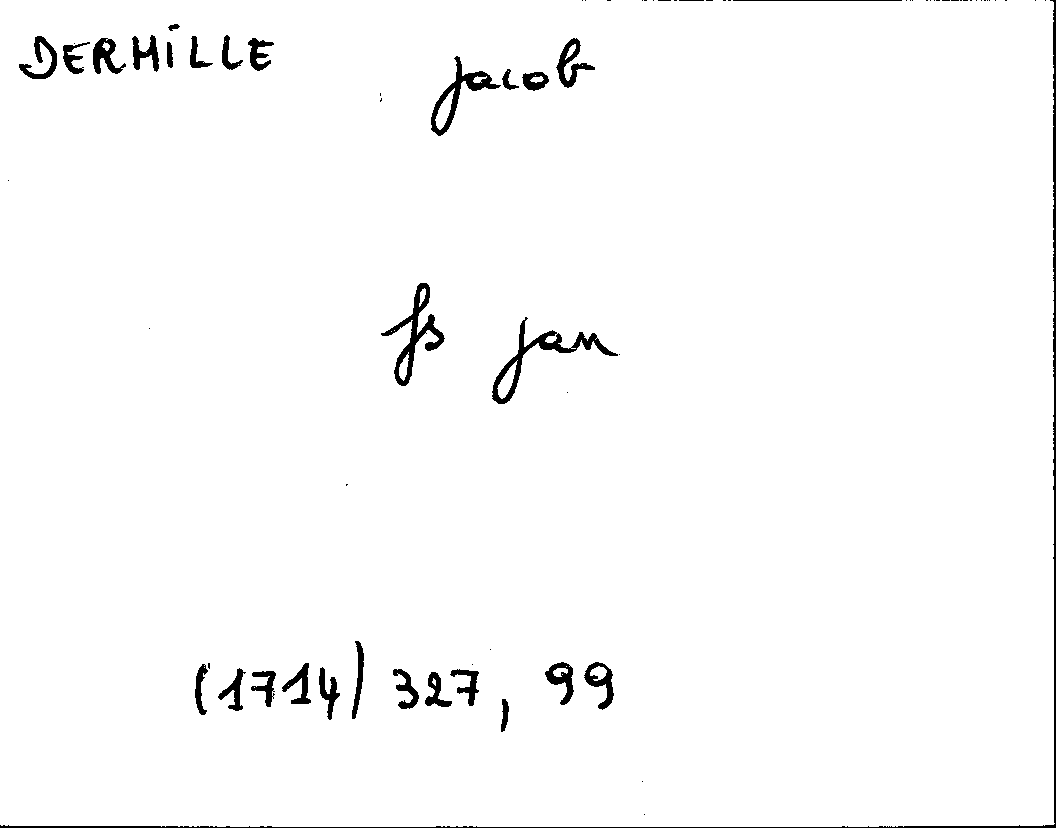 DERMILLE jacob
fs jan
(1714) 327, 99